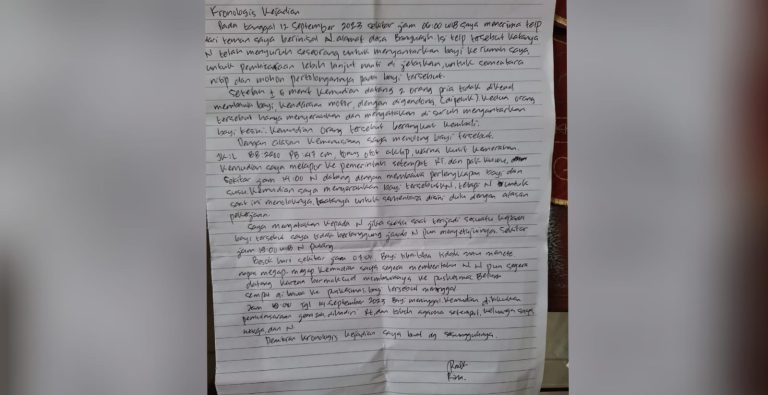 Kronologis Kejadian
Pada tanggal 12 September 2023 sekitar jam 06:00 WIB saya menerima telp
dari teman saya berinisial N. alamat desa Isi telp tersebut katanya
N telah menyuruh seseorang untuk mengantarkan bayi ke rumah saya
untuk lebih lanjut nanti di jelaskan, untuk sementara
nitip dan mohon pertolongannya pada bayi tersebut.
Setelah ± 5 menit kemudian datang 2 orang pria tidak dikenal
membawa bayi, kendaraan motor, dengan digendong (dipeluk). Kedua orang
tersebut hanya menyerahkan dan mengatakan di suruh mengantarkan
bayi kesini. Kemudian orang tersebut berangkat kembali.
Dengan alasan kemanusiaan saya menolong bayi tersebut.
BB 2200 PB 47 cm, tonus otot aktip, warna kulit kemerahan.
Kemudian saya melapor ke pemerintah setempat RT. dan pak
Sekitar jam 14:00 N datang dengan membawa perlengkapan bayi dan
susu. Kemudian saya menyerahkan bayi tersebut tetapi N untuk
saat ini menolaknya, untuk sementara disini dulu dengan alasan
pekerjaan.
Saya mengatakan kepada N jika suatu saat terjadi sesuatu kepada
bayi tersebut saya tidak bertanggung jawab N pun menyetujuinya. Sekitar
jam 18:00 WIB N pulang.
Besok hari sekitar jam 07:00 Bayi tiba-tiba tidak mau
napas megap-megap kemudian saya segera memberitahu N. N pun segera
datang karena bermaksud membawanya ke puskesmas Belum
sempat di bawa ke puskesmas bayi tersebut meninggal
Jam 10:00 Tgl 14 September 2023 Bayi meninggal kemudian dilakukan
pemulasaraan jenazah dihadiri Rt. dan tokoh agama setempat, keluarga saya
warga dan N
Demikian kronologis kejadian saya buat dg sesungguhnya.